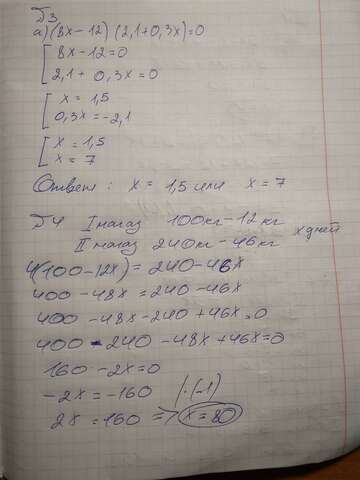 Д3
а) (8x-12) (2,1+0,3x)=0
[ 8x-12=0
2,1+0,3x=0
[ x = 1,5
0,3x=-2,1
[ x = 1,5
x = 7
Ответ: x = 1,5 или x = 7
Д4 I магаз 100кг-12кг
II магаз 240кг-46кг x дней
4(100-12x)=240-46x
400-48x=240-46x
400-48x-240+46x=0
400-240-48x+46x=0
160-2x=0
-2x=-160 |·(-1)
2x=160 => x=80